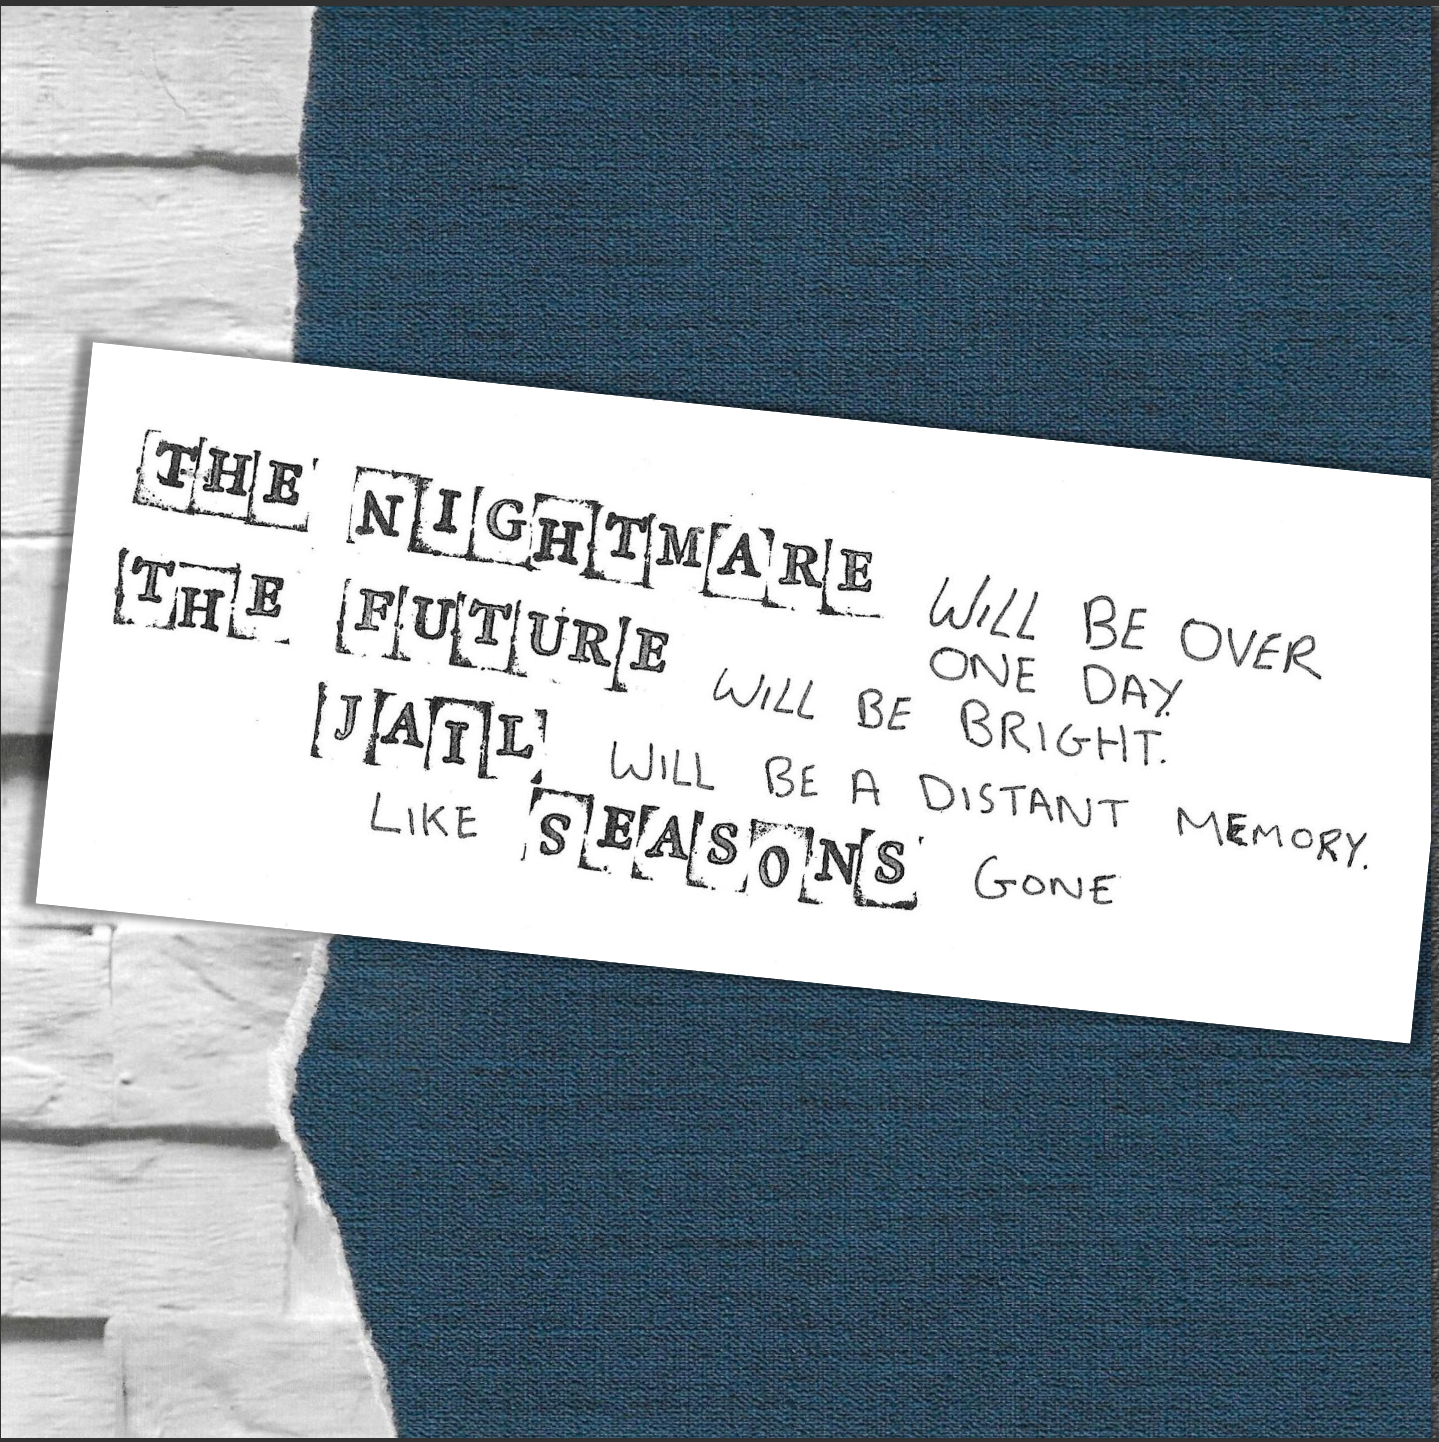 THE NIGHTMARE WILL BE OVER
ONE DAY.
THE FUTURE WILL BE BRIGHT.
JAIL WILL BE A DISTANT MEMORY.
LIKE SEASONS GONE